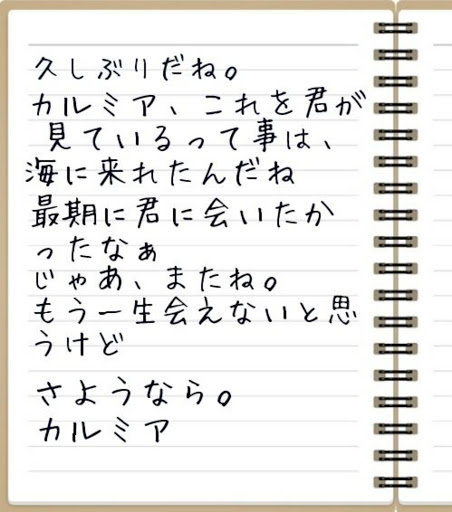 久しぶりだね。
カルミア、これを君が
見ているって事は、
海に来れたんだね
最期に君に会いたか
ったなぁ
じゃあ、またね。
もう一生会えないと思
うけど
さようなら。
カルミア